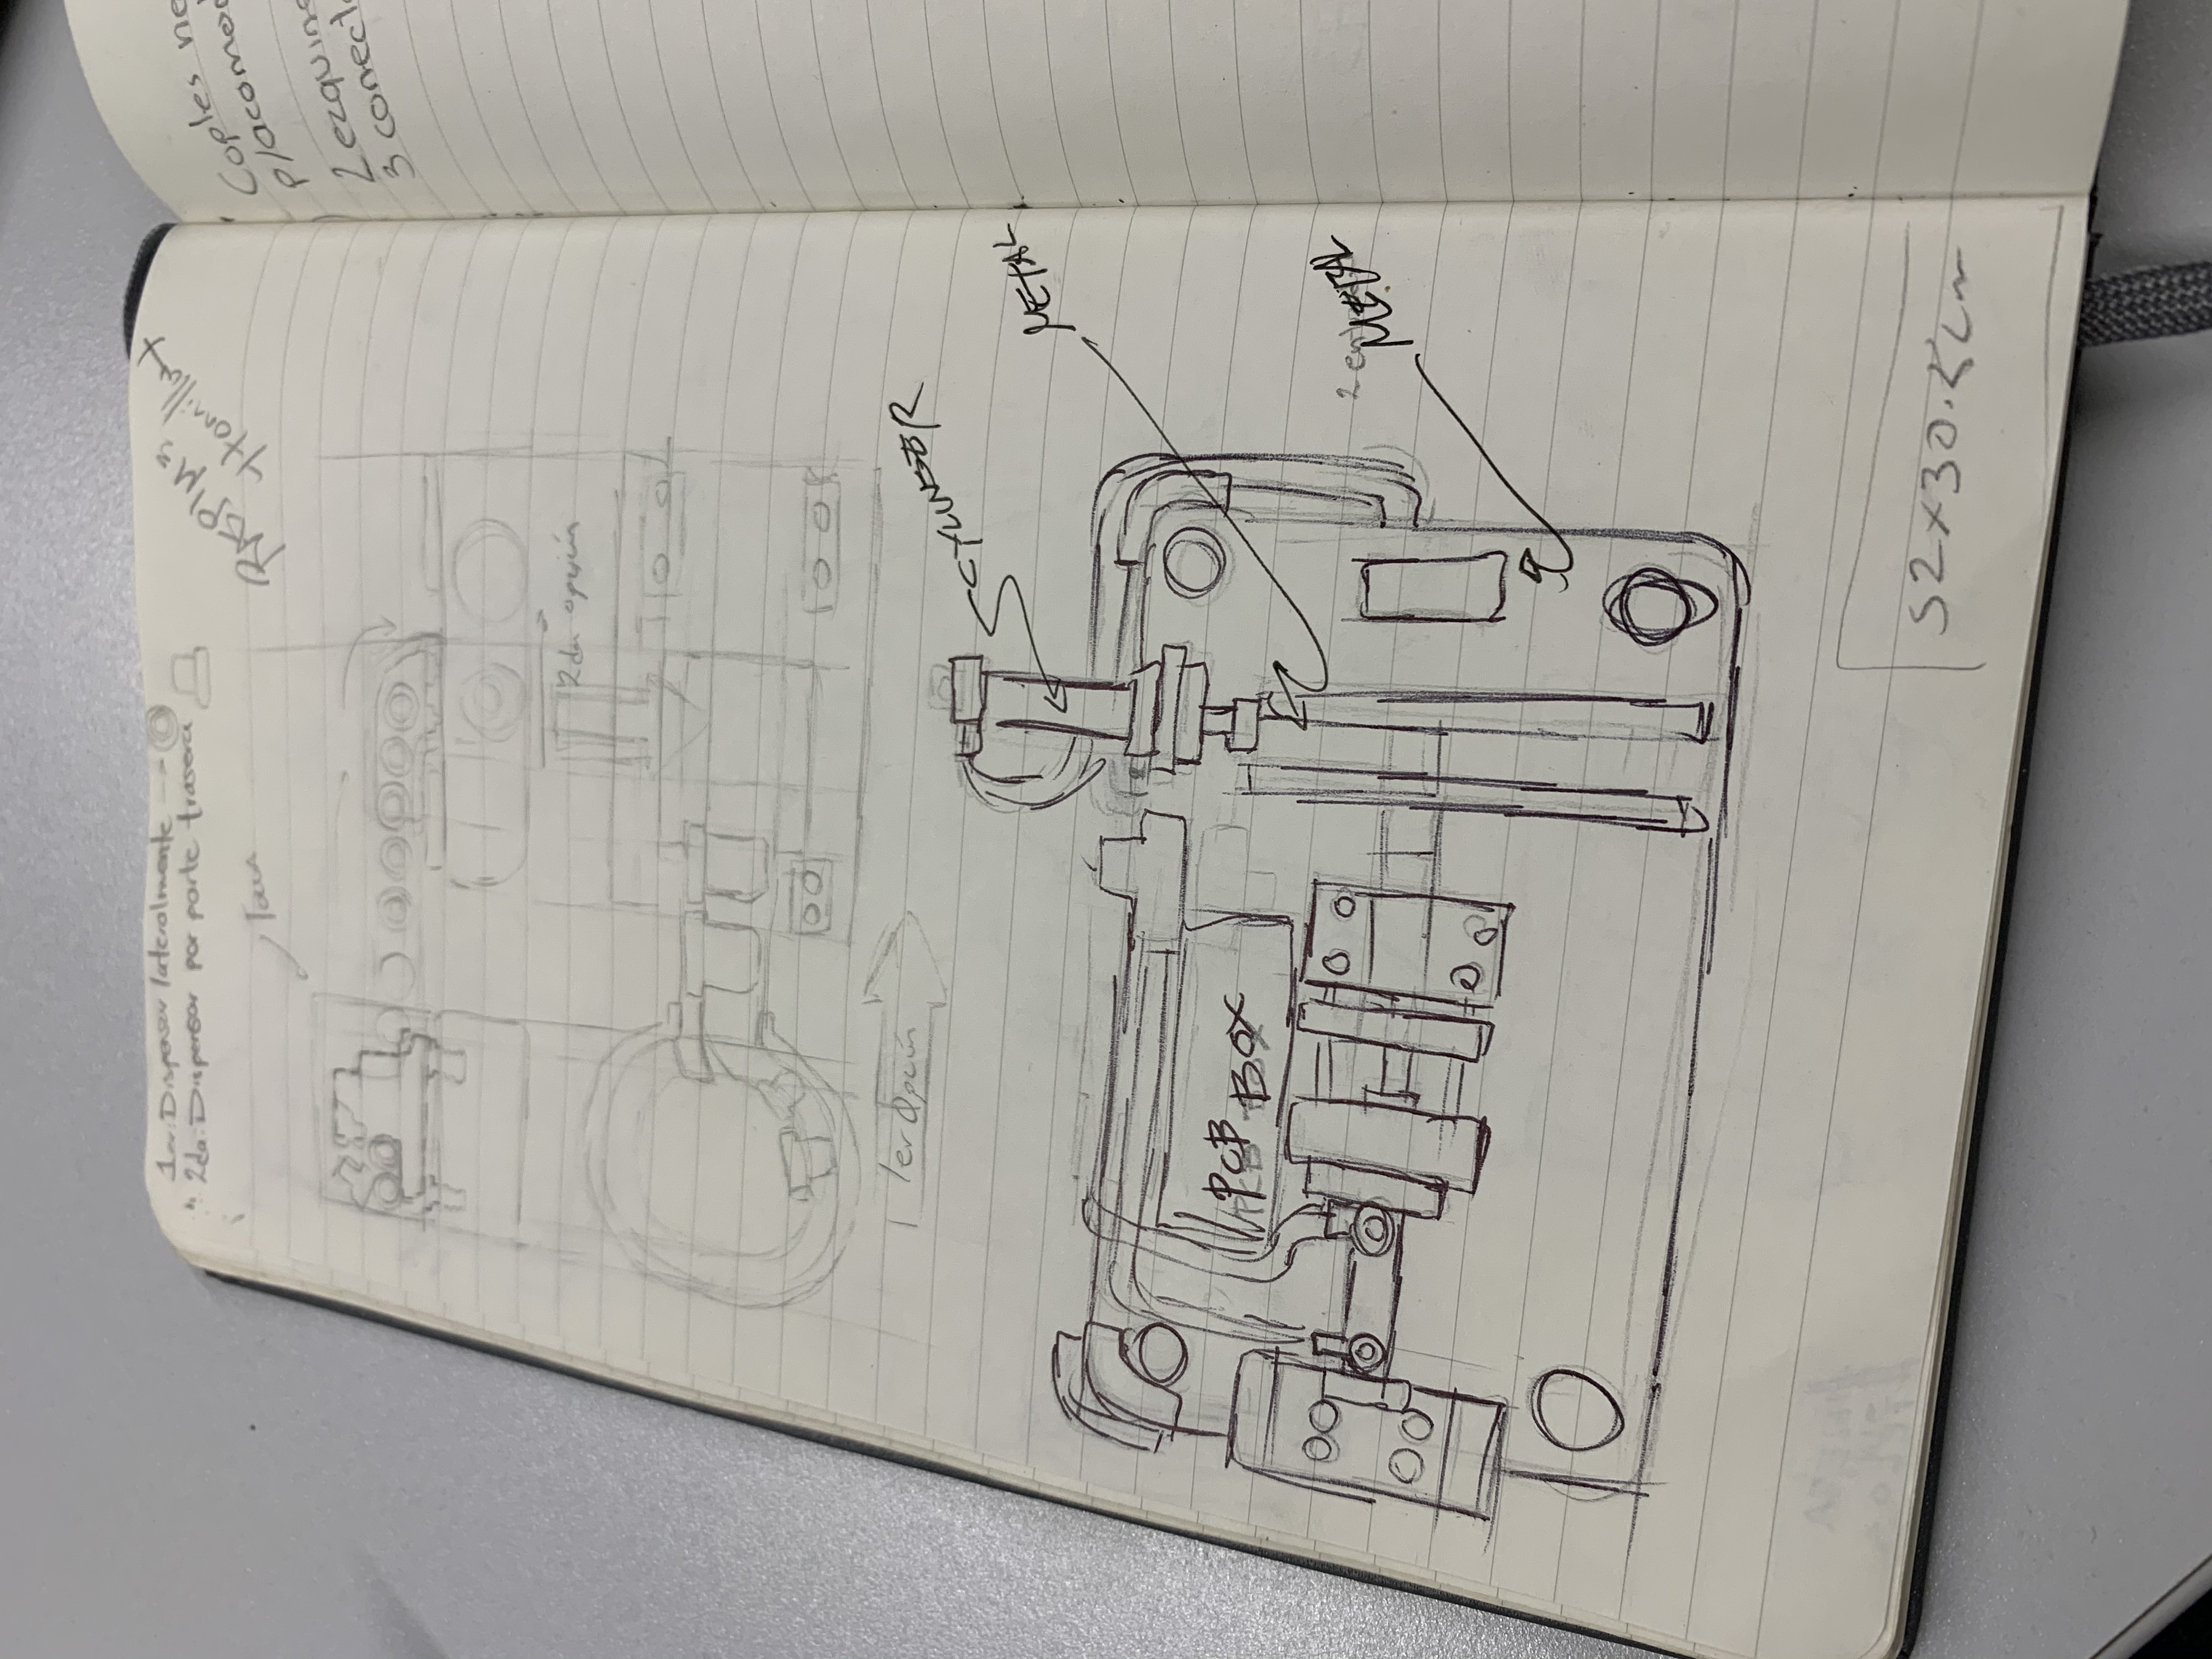 1er: Dispensar lateralmente
2da: Dispensar por parte trasera
RASPI M3
4 tornillos
2da opción
1er Opción
CYLINDER
METAL
PCB BOX
METAL
52x30.5cm
Coples ne
p/acomod
2 ezquin
3 conect